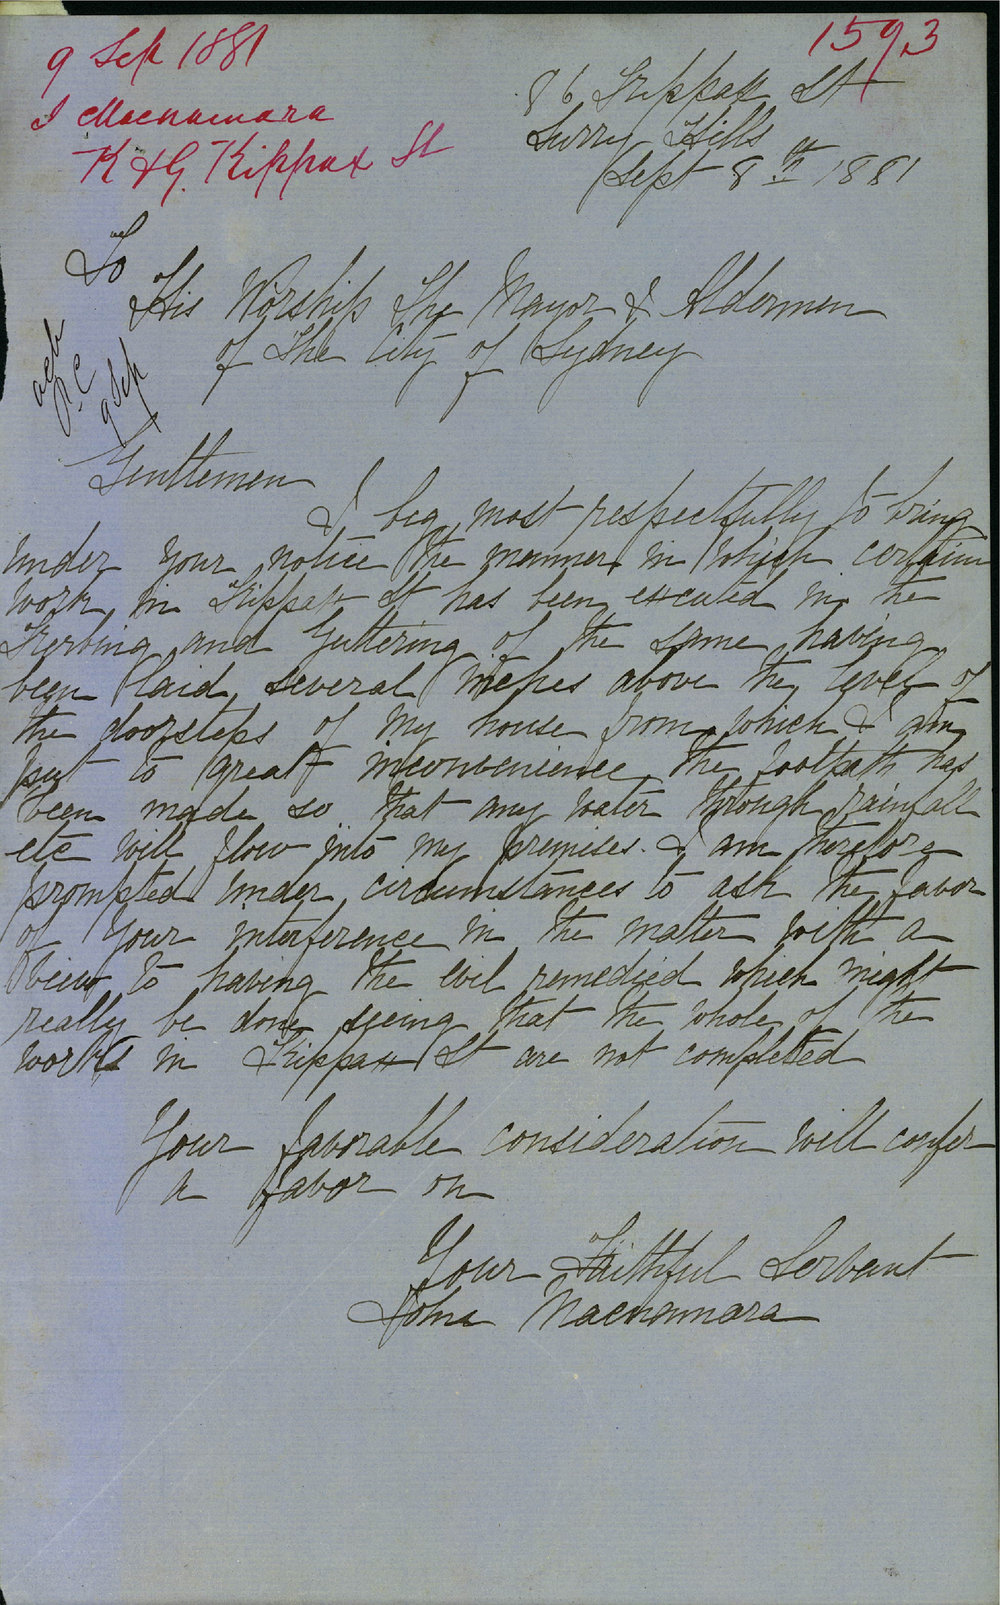 9 Sep 1881
1593
J Macnamara
K & G. Kippax St
86 Kippax St
Surry Hills
Sept 8th 1881
To
His Worship The Mayor & Aldermen
of The City of Sydney
9 Sep
Gentlemen
I beg most respectfully to bring
under your notice the manner in which certain
work in Kippax St has been executed in the
Kerbing and Guttering of the same having
been laid several inches above the level of
the doorsteps of my house from which I am
put to great inconvenience the footpath has
been made so that any water through rainfall
etc will flow into my premises. I am therefore
prompted under circumstances to ask the favor
of your interference in the matter with a
view to having the evil remedied which might
really be done seeing that the whole of the
works in Kippax St are not completed
Your favorable consideration will confer
a favor on
Your Faithful Servant
John Macnamara